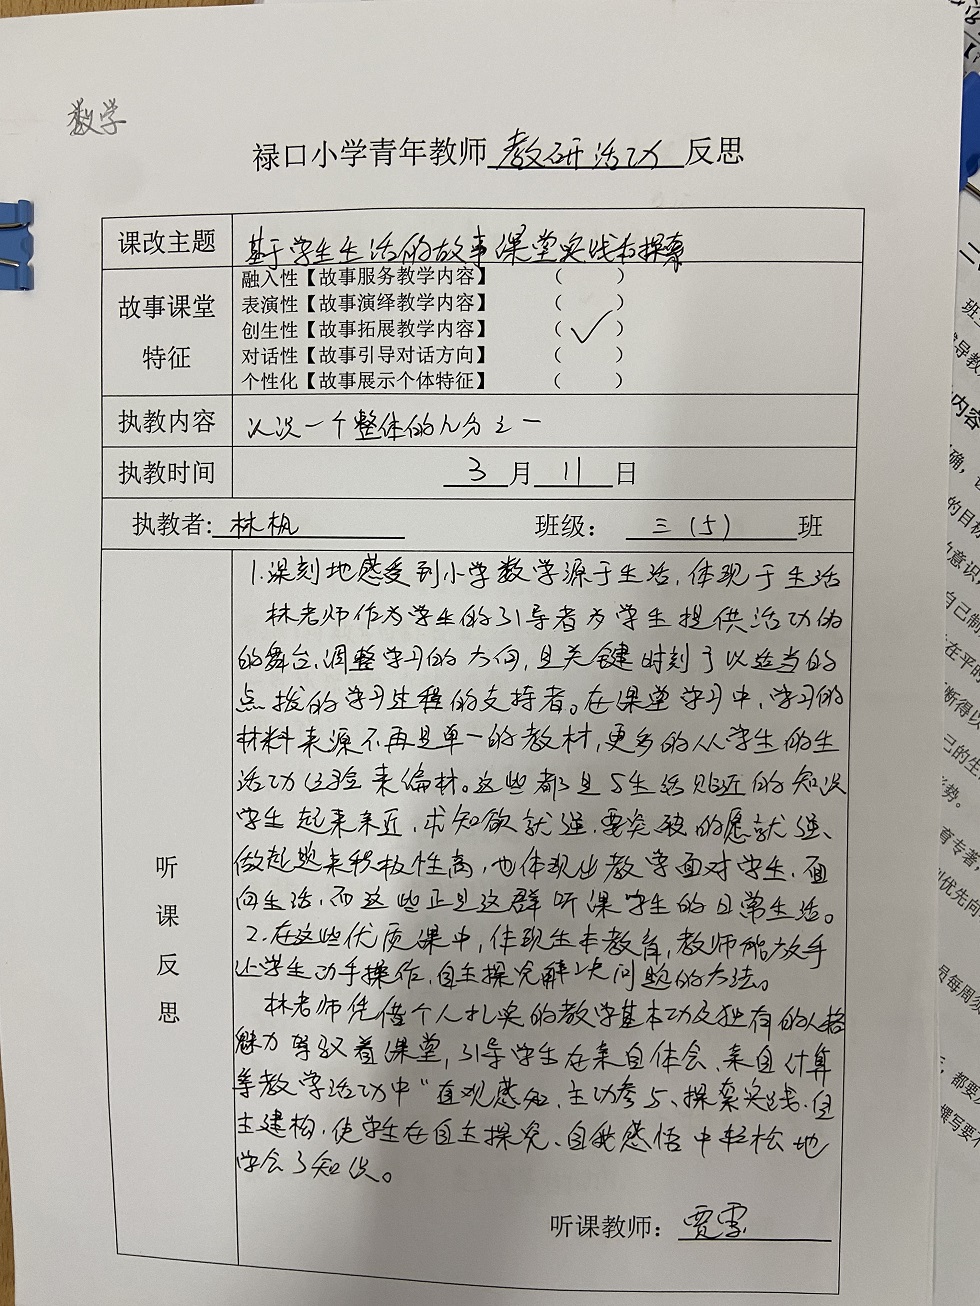 数学
禄口小学青年教师 教研活动 反思
课改主题 基于学生生活的故事课堂实践与探索
故事课堂特征
融入性【故事服务教学内容】 （ ）
表演性【故事演绎教学内容】 （ ）
创生性【故事拓展教学内容】 （ ✓ ）
对话性【故事引导对话方向】 （ ）
个性化【故事展示个体特征】 （ ）
执教内容 认识一个整体的几分之一
执教时间 3 月 11 日
执教者: 林枫 班级： 三（5） 班
听课反思
1.深刻地感受到小学数学源于生活，体现于生活
林老师作为学生的引导者为学生提供活动的
的舞台、调整学习的方向，且关键时刻予以适当的
点拨的学习过程的支持者。在课堂学习中，学习的
材料来源不再是单一的教材，更多的从学生的生
活动经验来编材。这些都是与生活贴近的知识
学生起来亲近，求知欲就强，要突破的愿就强、
做起题来积极性高，也体现出教学面对学生，面
向生活，而这些正是这群听课学生的日常生活。
2.在这些优质课中，体现生本教育，教师能放手
让学生动手操作，自主探究解决问题的方法。
林老师凭借个人扎实的教学基本功及独有的人格
魅力驾驭着课堂，引导学生在亲自体会、亲自计算
等教学活动中“直观感知、主动参与、探索实践、自
主建构，使学生在自主探究、自我感悟中轻松地
学会了知识。
听课教师： 贾雯